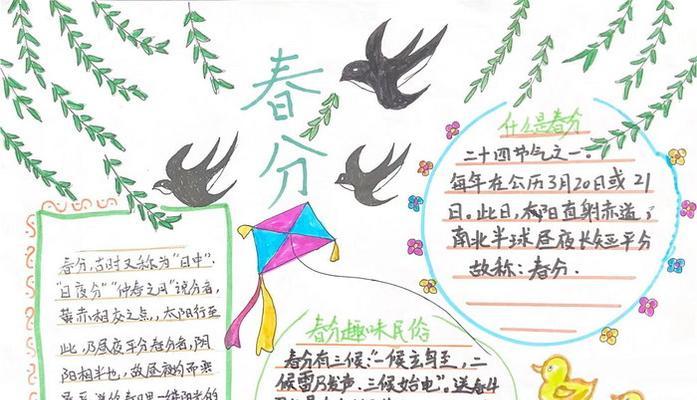 春分
什么是春分
二十四节气之一。
每年在公历3月20日或21
日。此日,太阳直射赤道,
南北半球昼夜长短平分
故称:春分.
春分,古时又称为"日中".
"日夜分""仲春之月"说分者,
黄赤相交之点,太阳行至
此,乃昼夜平分春分者,阴
阳相半也,故昼夜均而寒
春分趣味民俗
春分有三候:"一候玄鸟至,二
候雷乃发声.三候始电"。送春牛